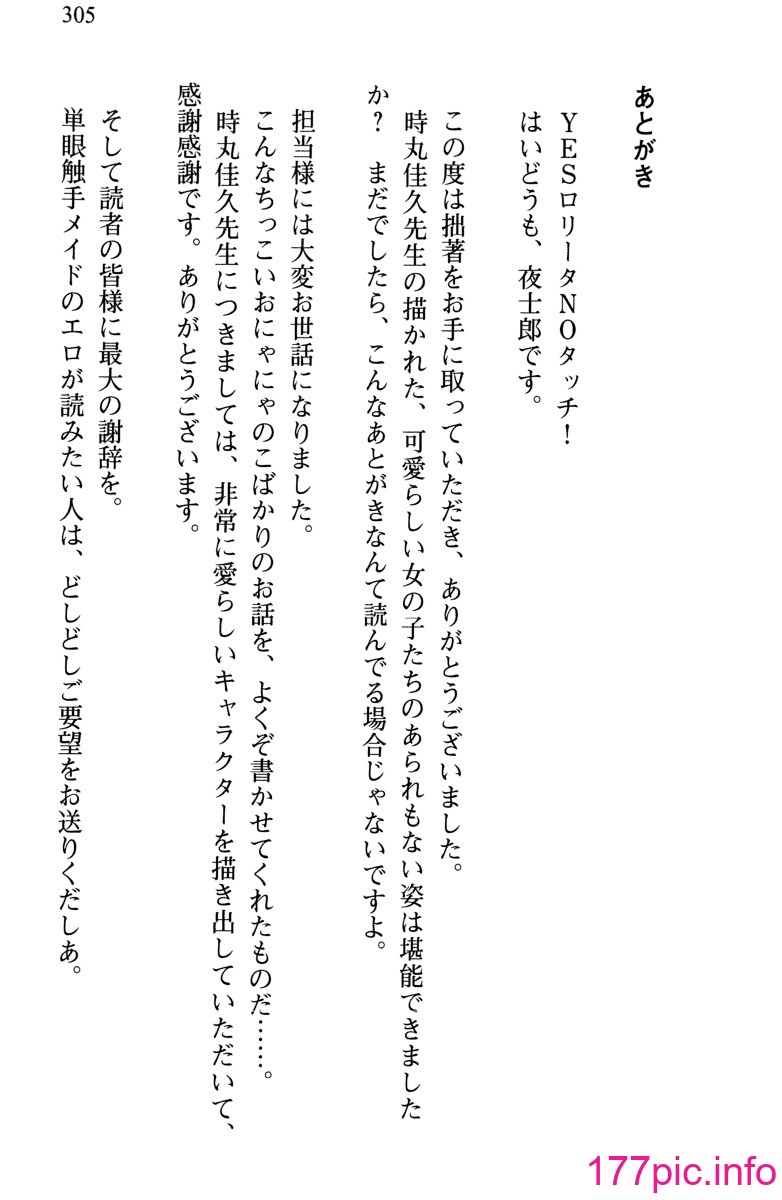 305
あとがき
YESロリータNOタッチ!
はいどうも、夜士郎です。
この度は拙著をお手に取っていただき、ありがとうございました。
時丸佳久先生の描かれた、可愛らしい女の子たちのあられもない姿は堪能できました
か? まだでしたら、こんなあとがきなんて読んでる場合じゃないですよ。
担当様には大変お世話になりました。
こんなちっこいおにゃにゃのこばかりのお話を、よくぞ書かせてくれたものだ……。
時丸佳久先生につきましては、非常に愛らしいキャラクターを描き出していただいて、
感謝感謝です。ありがとうございます。
そして読者の皆様に最大の謝辞を。
単眼触手メイドのエロが読みたい人は、どしどしご要望をお送りくだしあ。
177pic.info